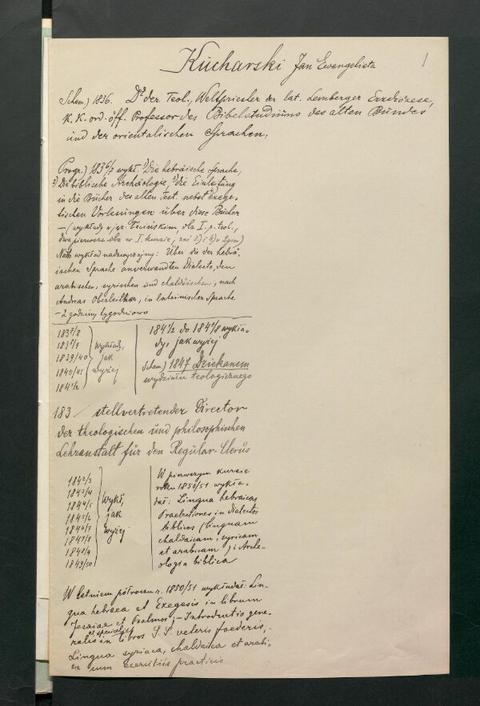 Kucharski Jan Ewangelista
1
Schem.) 1836. Dr der Teol., Weltpriester der lat. Lemberger Erzdiözese,
K. K. ord. öff. Professor des Bibelstudiums des alten Bundes
und der orientalischen Sprachen.
Progr.) 1836/7 wykł. 1) Die hebräische Sprache,
2) Die biblische Archäologie, 3) die Einleitung
in die Bücher des alten Test. nebst exege-
tischen Vorlesungen über diese Bücher
— (wykłady w jęz. łacińskim, dla I. r. teol.,
Nadto wykład nadzwyczajny: Über die der hebrä-
ischen Sprache anverwandten Dialecte, den
arabischen, syrischen und chaldäischen, nach
Andreas Oberleitner, in lateinischer Sprache
— 2 godziny tygodniowo
1837/8
1838/9
1839/40
1840/41
1841/2
wykłady,
jak
wyżej
1841/2 do 1847/8 wykła-
dy, jak wyżej
Schem.) 1847 Dziekanem
wydziału teologicznego
183 / stellvertretender Director
der theologischen und philosophischen
Lehranstalt für den Regular-Clerus
1842/3
1843/4
1844/5
1845/6
1846/7
1847/8
1848/9
1849/50
wykł.
jak
wyżej
W pierwszym kursie
roku 1850/51 wykła-
dał: Lingua hebraica,
Praelectiones in dialectos
biblicos (linguam
chaldaicam, syricam
et arabicam) i Arche-
ologia biblica
W letniem półroczu r. 1850/51 wykładał: Lin-
gua hebraea et Exegesis in librum
Jesaiae et Psalmos, — Introductio gene-
ralis et specialis in libros S. S. veteris foederis, -
Lingua syriaca, chaldaica et arabi-
ca cum exercitiis practicis